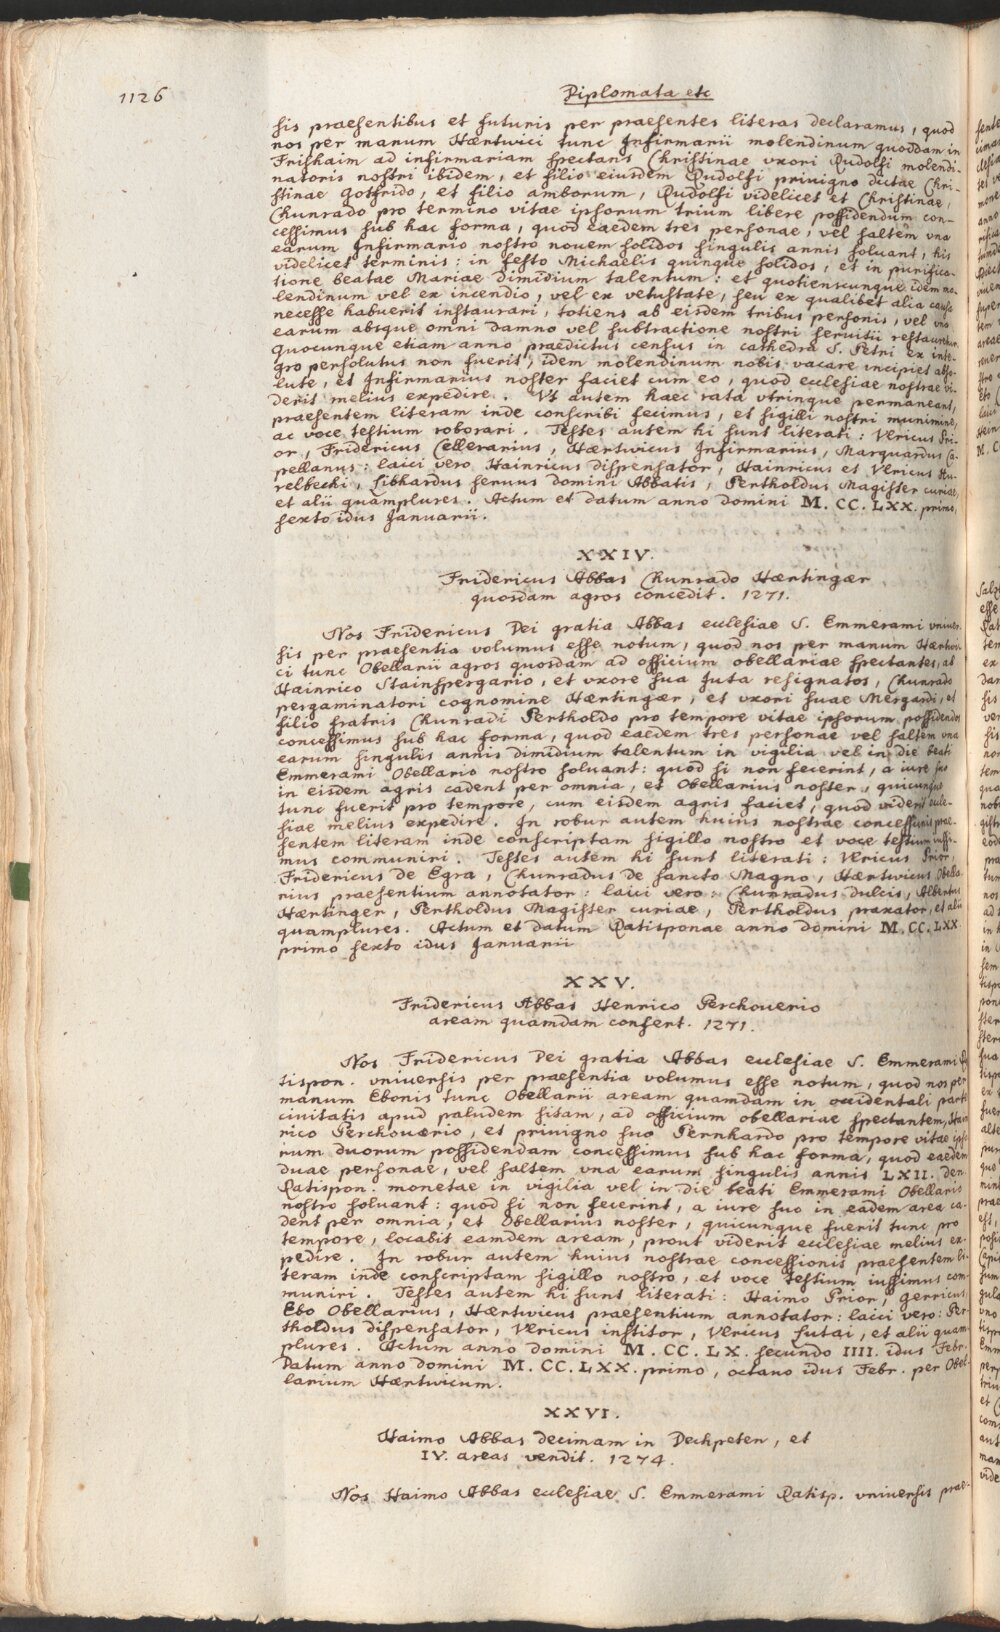 1126
Diplomata etc
sis praesentibus et futuris per praesentes literas declaramus, quod
nos per manum Haertwici tunc Infirmarii molendinum quoddam in
Frishaim ad infirmariam spectans Christinae vxori Rudolfi molendi-
natoris nostri ibidem, et filio eiusdem Rudolfi priuigno dictae Chri-
stinae Gotfrido, et filio amborum, Rudolfi videlicet et Christinae,
Chunrado pro termino vitae ipsorum trium libere possidendum con-
cessimus sub hac forma, quod eaedem tres personae, vel saltem vna
earum Infirmario nostro nouem solidos singulis annis soluant, his
videlicet terminis: in festo Michaelis quinque solidos, et in purifica-
tione beatae Mariae dimidium talentum: et quotienscunque idem mo-
lendinum vel ex incendio, vel ex vetustate, seu ex qualibet alia causa
necesse habuerit instaurari, totiens ab eisdem tribus personis, vel vna
earum absque omni damno vel subtractione nostri seruitii restauretur.
Quocunque etiam anno praedictus census in cathedra S. Petri ex inte-
gro persolutus non fuerit, idem molendinum nobis vacare incipiet abso-
lute, et Infirmarius noster faciet cum eo, quod ecclesiae nostrae vi-
derit melius expedire. Vt autem haec rata vtrinque permaneant,
praesentem literam inde conscribi fecimus, et sigilli nostri munimine,
ac voce testium roborari. Testes autem hi sunt literati: Vlricus Pri-
or, Fridericus Cellerarius, Haertwicus Infirmarius, Marquardus Ca-
pellanus: laici vero Hainricus dispensator, Hainricus et Vlricus
relbecki, Libhardus seruus domini Abbatis, Pertholdus Magister curiae,
et alii quamplures. Actum et datum anno domini M. CC. LXX. primo,
sexto idus Januarii.
XXIV.
Fridericus Abbas Chunrado Haertingaer
quosdam agros concedit. 1271.
Nos Fridericus Dei gratia Abbas ecclesiae S. Emmerami vniuer-
sis per praesentia volumus esse notum, quod nos per manum Haertwi-
ci tunc Obellarii agros quosdam ad officium obellariae spectantes, ab
Hainrico Stainspergario, et vxore sua Juta resignatos, Chunrado
pergaminatori cognomine Haertingaer, et vxori suae Mergardi, et
filio fratris Chunradi Pertholdo pro tempore vitae ipsorum possidendos
concessimus sub hac forma, quod eaedem tres personae vel saltem vna
earum singulis annis dimidium talentum in vigilia vel in die beati
Emmerami Obellario nostro soluant: quod si non fecerint, a iure suo
in eisdem agris cadent per omnia, et Obellarius noster, quicunque
tunc fuerit pro tempore, cum eisdem agris faciet, quod viderit eccle-
siae melius expedire. In robur autem huius nostrae concessionis prae-
sentem literam inde conscriptam sigillo nostro et voce testium iussi-
mus communiri. Testes autem hi sunt literati: Vlricus Prior,
Fridericus de Egra, Chunradus de sancto Magno, Haertwicus Obella-
rius praesentium annotator: laici vero: Chunradus dulcis, Albertus
Haertinger, Pertholdus Magister curiae, Pertholdus praxator, et alii
quamplures. Actum et datum Ratisponae anno domini M. CC. LXX
primo sexto idus Januarii
XXV.
Fridericus Abbas Henrico Perchouerio
aream quamdam confert. 1271.
Nos Fridericus Dei gratia Abbas ecclesiae S. Emmerami Ra-
tispon. vniuersis per praesentia volumus esse notum, quod nos per
manum Ebonis tunc Obellarii aream quamdam in occidentali parte
ciuitatis apud paludem sitam, ad officium obellariae spectantem, Hain-
rico Perchouaerio, et priuigno suo Pernhardo pro tempore vitae ipso-
rum duorum possidendam concessimus sub hac forma, quod eaedem
duae personae, vel saltem vna earum singulis annis LXII. den.
Ratispon. monetae in vigilia vel in die beati Emmerami Obellario
nostro soluant: quod si non fecerint, a iure suo in eadem area ca-
dent per omnia, et Obellarius noster, quicunque fuerit tunc pro
tempore, locabit eamdem aream, prout viderit ecclesiae melius ex-
pedire. In robur autem huius nostrae concessionis praesentem li-
teram inde conscriptam sigillo nostro, et voce testium iussimus com-
muniri. Testes autem hi sunt literati: Haimo Prior, Gerricus,
Ebo Obellarius, Haertwicus praesentium annotator: laici vero: Per-
tholdus dispensator, Vlricus institor, Vlricus futai, et alii quam-
plures. Actum anno domini M. CC. LX. secundo IIII. idus Febr.
Datum anno domini M. CC. LXX. primo, octauo idus Febr. per Obel-
larium Haertwicum.
XXVI.
Haimo Abbas decimam in Dechpeten, et
IV. areas vendit. 1274.
Nos Haimo Abbas ecclesiae S. Emmerami Ratisp. vniuersis prae-